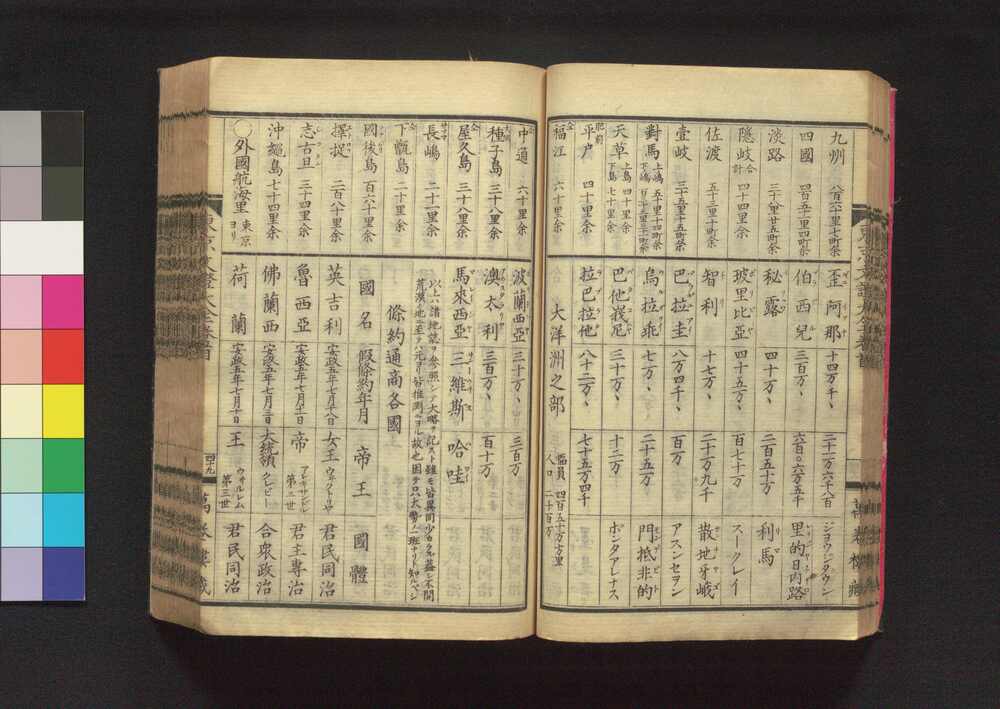 九州 八百六十里七町余
四國 四百五十里四町余
淡路 三十八里廿五町余
隠岐 合計 四十四里余
佐渡 五十三里十町余
壹岐 三十五里十五町余
對馬 上嶋 五十里十四町余
天草 上島 四十里余 下島 七十里余
肥前 平戸 四十里余
仝 福江 六十里余
歪阿那 十四万千、 二十一万六千八百 ジヨウジタウン
伯西兒 三百万、 六百〇六万五千 里約日内路
秘露 四十万、 二百五十万 利馬
玻里比亞 四十五万、 百七十万 スークレイ
智利 十七万、 二十一万九千 散地牙峨
巴拉圭 八万四千、 百万 アスンセヲン
烏拉乖 七万、 二十五万 門抵非的
巴他峩尼 三十万、 十二万 ポンタアレナス
拉巴拉他 八十二万、 七十五万四千
大洋洲之部 幅員 四百五十万方里 人口 二千百万
仝 中通 六十里余
大隅 種子島 三十八里余
仝 屋久島 三十八里余
サツマ 長嶋 二十一里余
仝 下甑島 二十里余
國後島 百六十里余
擇捉 二百八十里余
志古旦 三十四里余
沖繩島 七十四里余
〇外國航海里 東京ヨリ
波蘭西亞 三十万、 三百万
澳太利 三百万、 百十万
馬來西亞 三維斯 哈哇
以上ハ諸地誌ヲ參照シテ大略ヲ記スト雖モ皆異同少カラス蓋シ不開
荒漠ノ地ニ至テハ元ヨリ皆推測ニヨル故也因テ只大勢ノ一班ナリト知ルベシ
條約通商各國
國名 假條約年月 帝王 國體
英吉利 安政五年七月十八日 女王 ウ井クトリヤ 君民同治
魯西亞 安政五年七月十一日 帝 アレキサンドル 第二世 君主專治
佛蘭西 安政五年七月三日 大統領 クレビー 合衆政治
荷蘭 安政五年七月十日 王 ウヰルレム 第三世 君民同治
四十九
萬笈樓藏